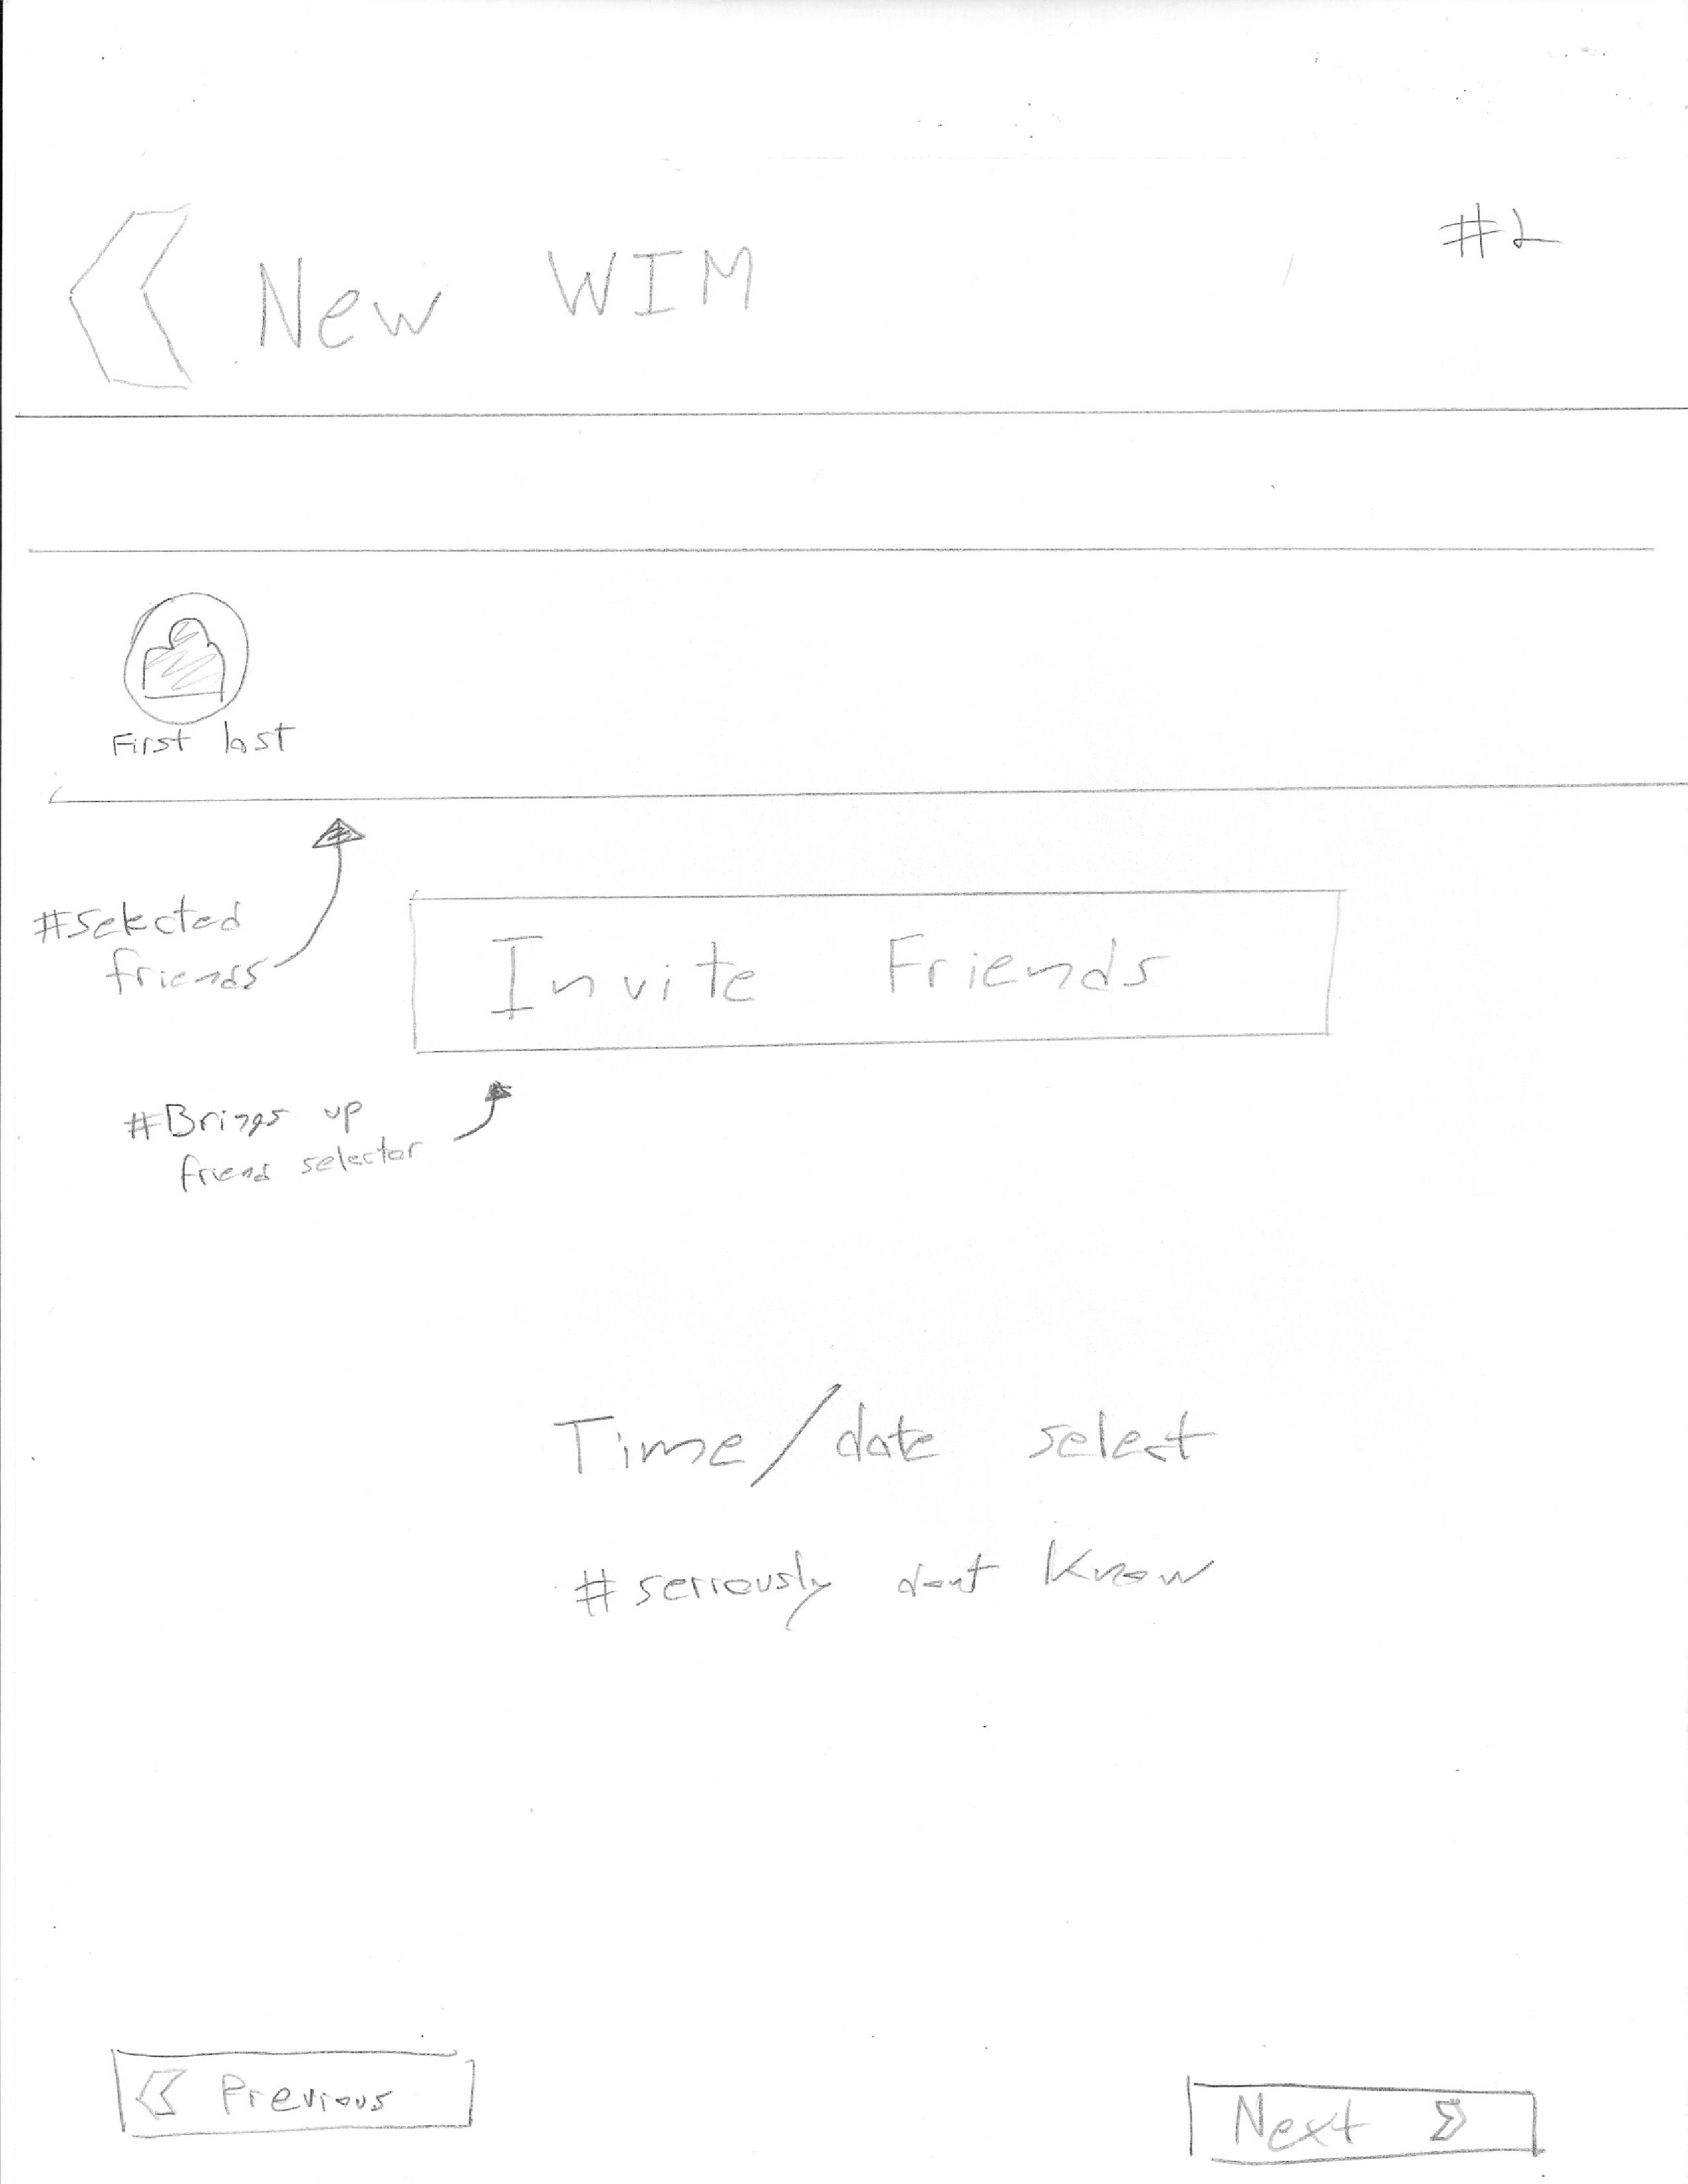 New WIM
#2
First last
#Selected
friends
Invite Friends
#Brings up
friend selector
Time/date select
#seriously dont know
Previous
Next